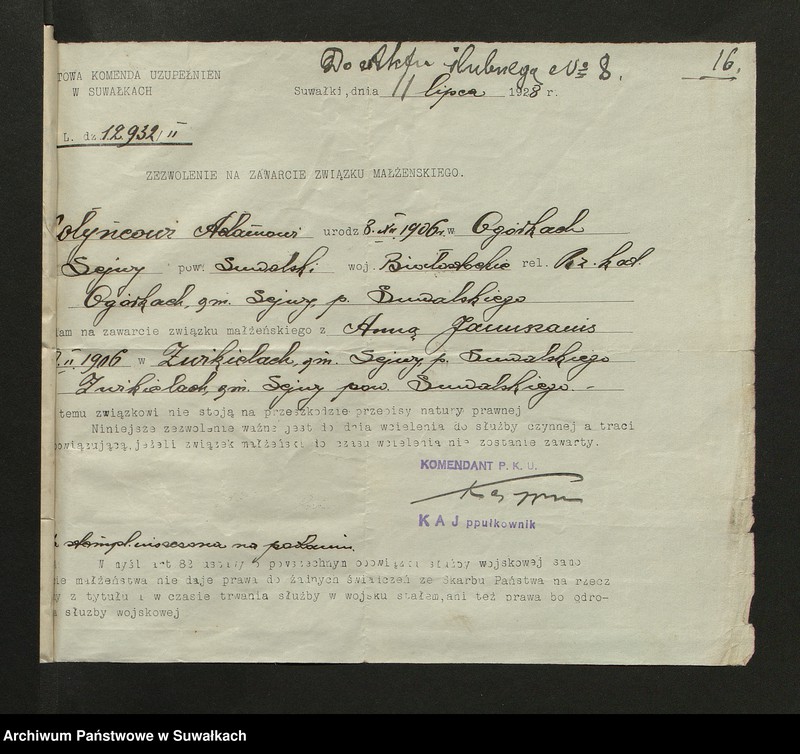 Do Aktu ślubnego No 8.
16.
TOWA KOMENDA UZUPEŁNIEN
W SUWAŁKACH
Suwałki, dnia 11 lipca 1928 r.
L. dz 12932/II
ZEZWOLENIE NA ZAWARCIE ZWIĄZKU MAŁŻENSKIEGO.
Adamowi urodz 8. 1906 r. w Ogórkach
Sejwy pow. Suwalski woj. Białostockie rel. Rz. kat.
Ogórkach, gm. Sejwy p. Suwalskiego
am na zawarcie związku małżeńskiego z Anną
II 1906 w Żwikielach, gm. Sejwy, p. Suwalskiego
Żwikielach, gm. Sejwy pow. Suwalskiego. -
temu związkowi nie stoją na przeszkodzie przepisy natury prawnej
Niniejsze zezwolenie ważne jest do dnia wcielenia do służby czynnej a traci
owiązującą, jeżeli związek małżeński do czasu wcielenia nie zostanie zawarty.
KOMENDANT P. K. U.
K A J ppułkownik
stempl. uiszczona na podaniu.
W myśl art 82 ustawy o powszechnym obowiązku służby wojskowej samo
ie małżeństwa nie daje prawa do żadnych świadczeń ze Skarbu Państwa na rzecz
y z tytułu i w czasie trwania służby w wojsku stałem, ani też prawa bo odro-
a służby wojskowej
Archiwum Państwowe w Suwałkach